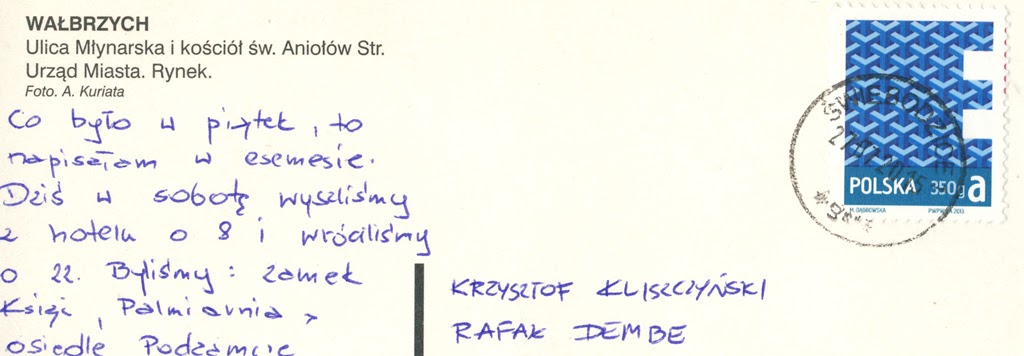 WAŁBRZYCH
Ulica Młynarska i kościół św. Aniołów Str.
Urząd Miasta. Rynek.
Foto. A. Kuriata
Co było w piątek, to
napisałam w esemesie.
Dziś w sobotę wyszliśmy
z hotelu o 8 i wróciliśmy
o 22. Byliśmy: zamek
Książ, Palmiarnia,
osiedle Podzamcze
POLSKA 350g a
M. DĄBROWSKA PWPW S.A. 2013
KRZYSZTOF KLISZCZYŃSKI
RAFAŁ DEMBE